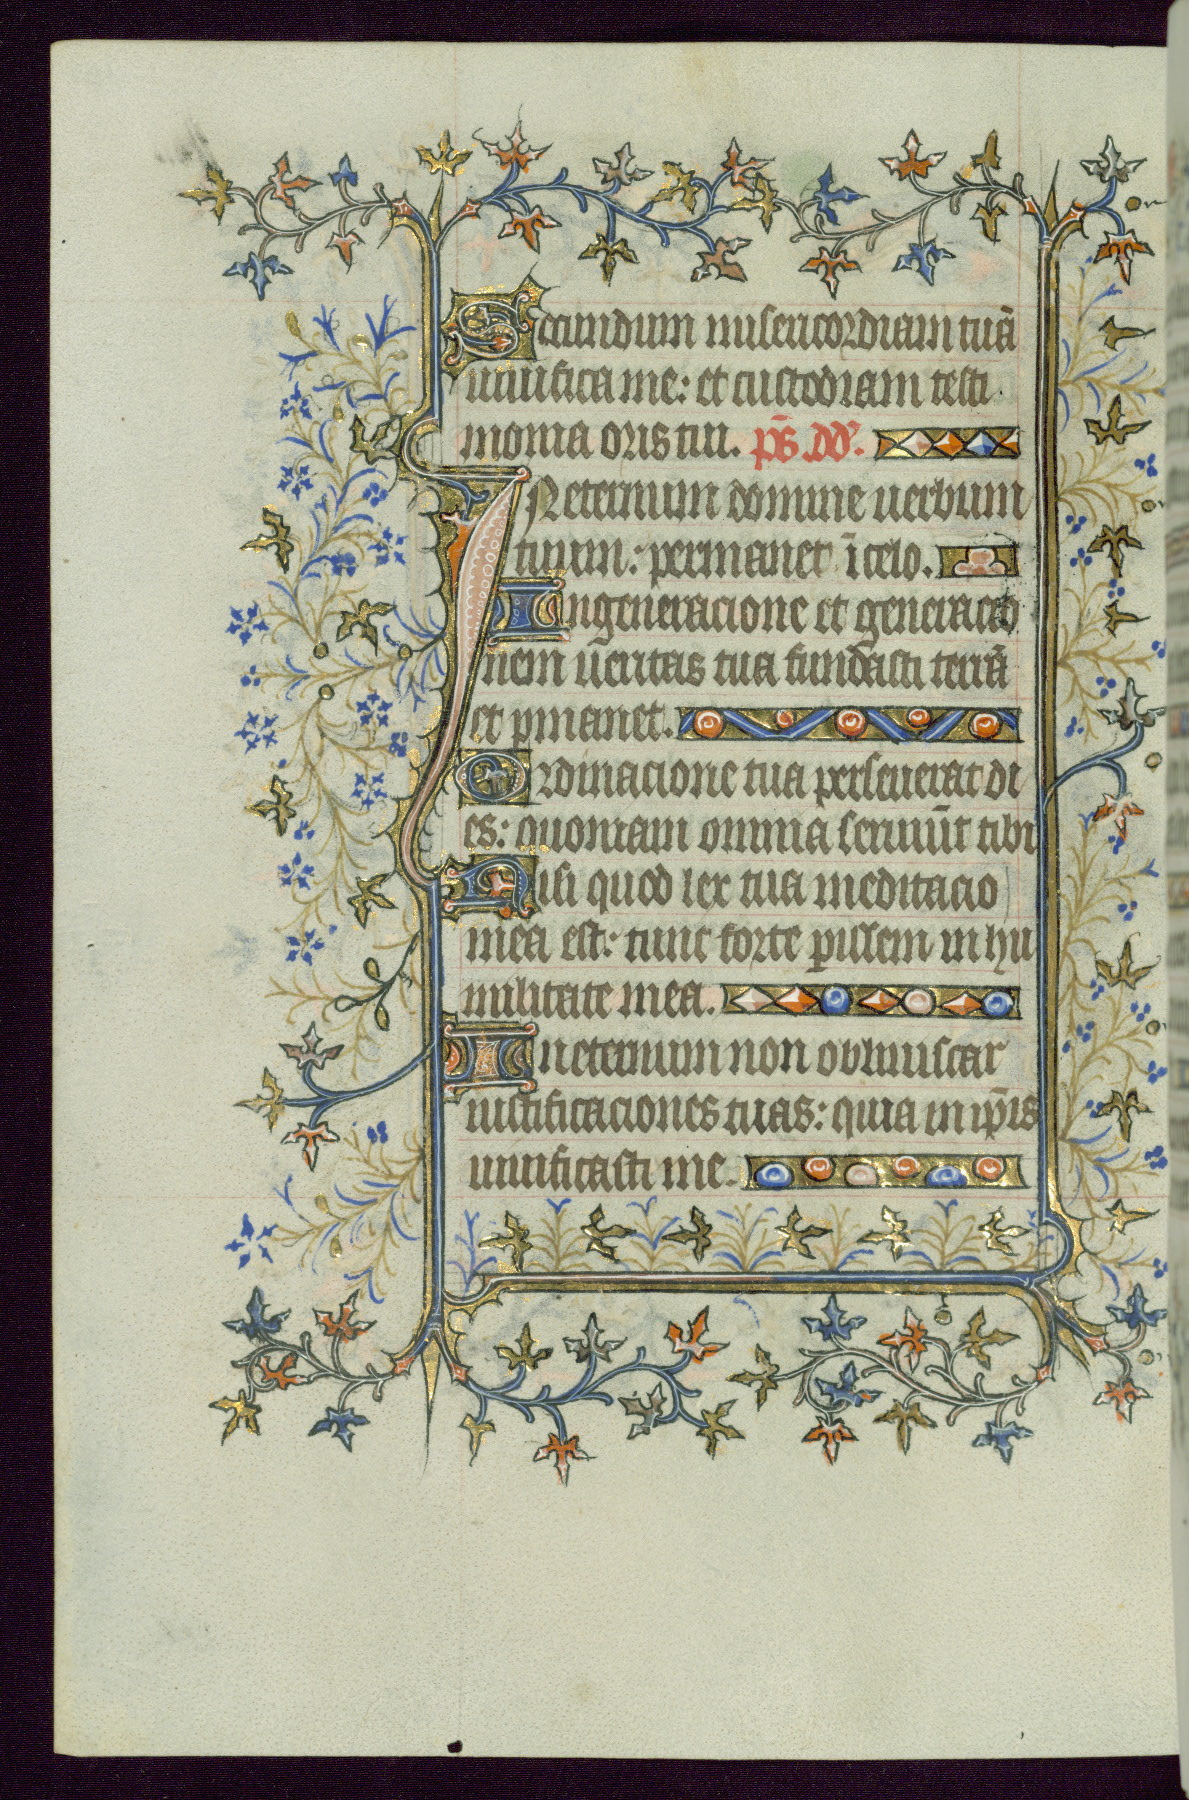 Secundum misericordiam tuā
uiuifica me: et custodiam testi
monia oris tui. ps̄. dd'.
IN eternum domine uerbum
tuum: permanet ī celo.
In generacione et generacio
nem ueritas tua fundasti terrā
et pmanet.
Ordinacione tua perseuerat di
es: quoniam omnia seruiūt tibi
Nisi quod lex tua meditacio
mea est: tunc forte pissem in hu
militate mea.
In eternum non obliuiscar
iustificaciones tuas: quia in ip̄is
uiuificasti me.